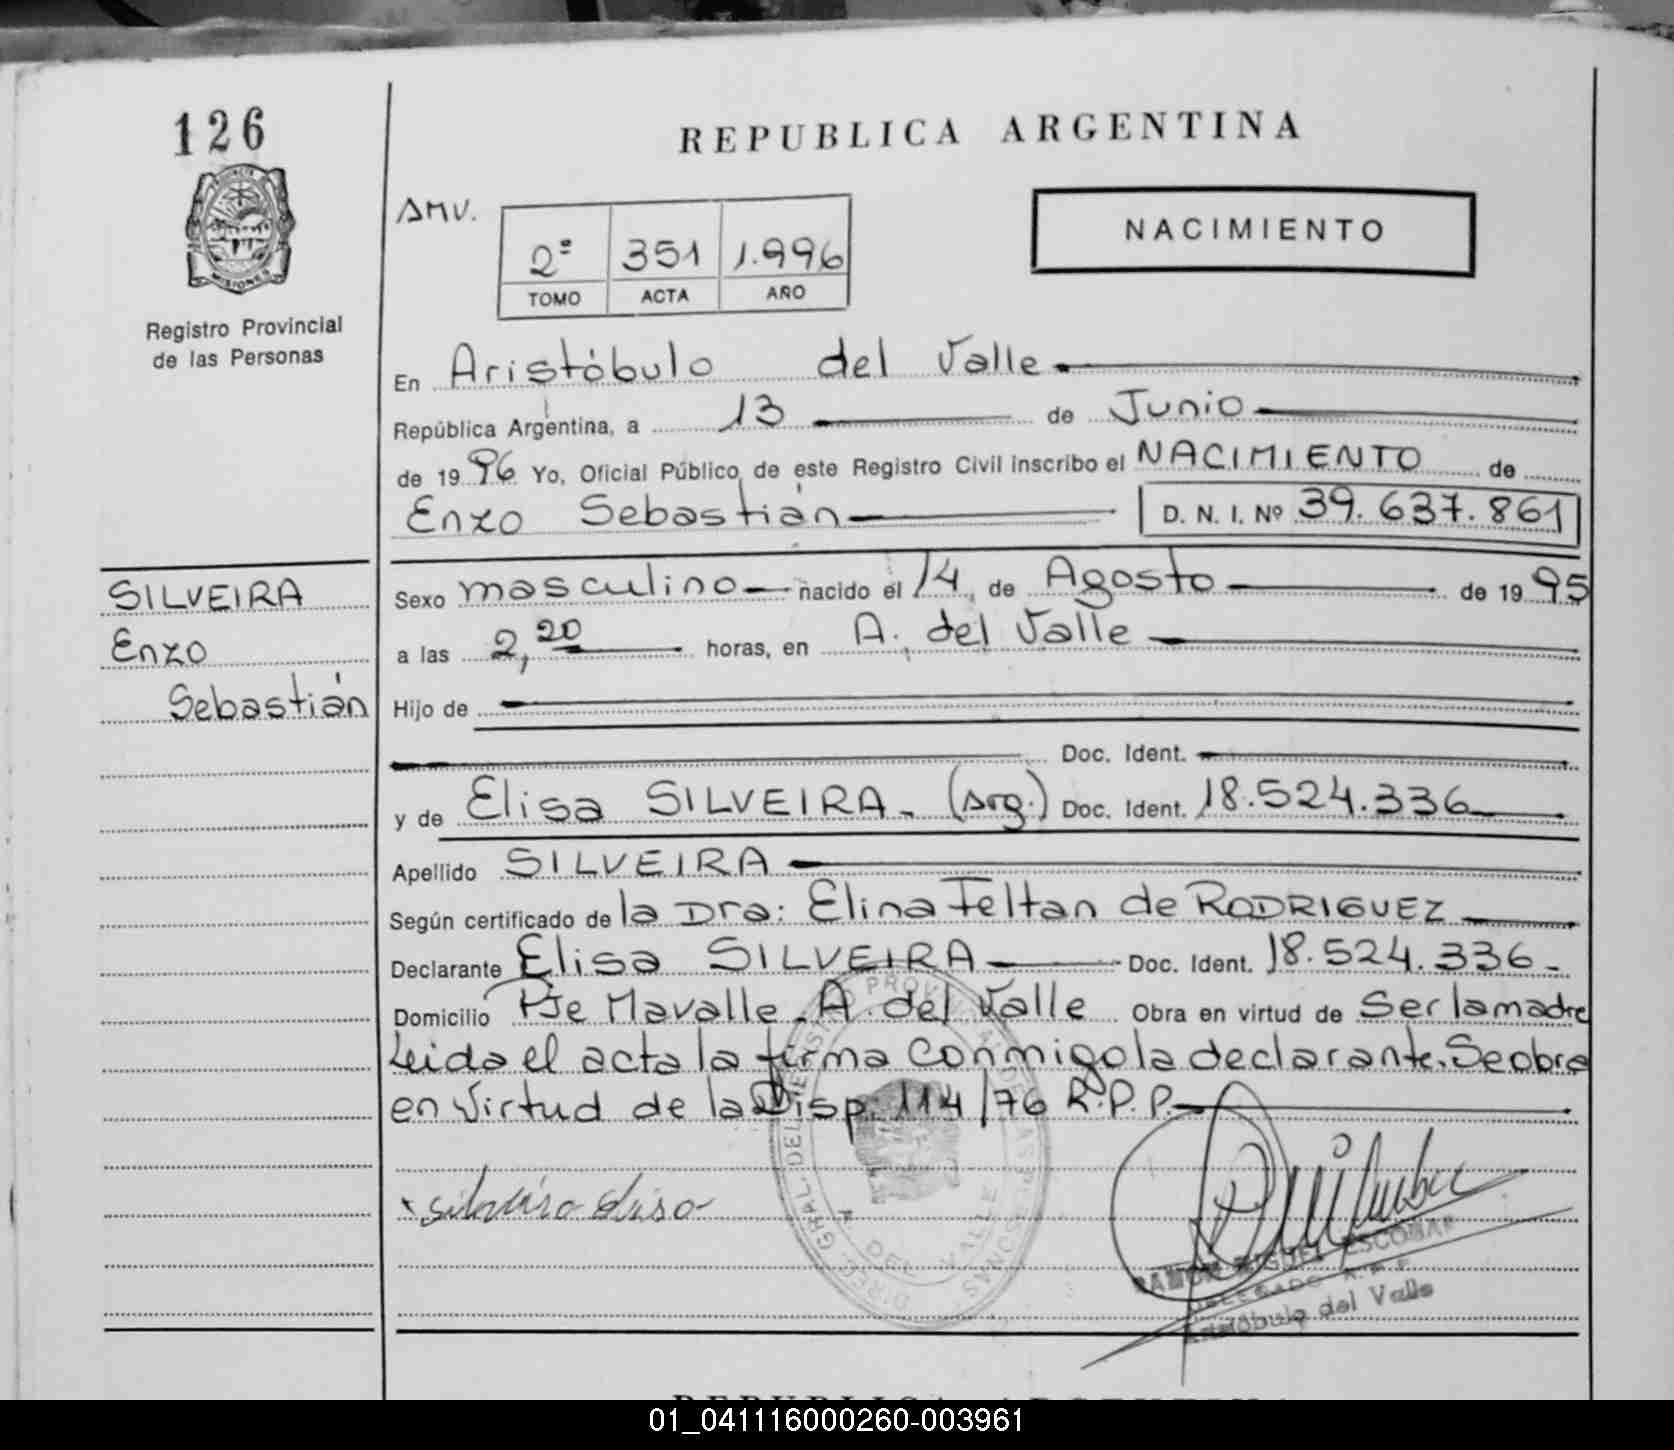 126
REPUBLICA ARGENTINA
MISIONES
Registro Provincial
de las Personas
AMV.
2º 351 1.996
TOMO ACTA AÑO
NACIMIENTO
En Aristóbulo del Valle
República Argentina, a 13 de Junio
de 1996 Yo, Oficial Público de este Registro Civil inscribo el NACIMIENTO de
Enzo Sebastián D. N. I. Nº 39.637.861
SILVEIRA
Enzo
Sebastián
Sexo masculino nacido el 14 de Agosto de 1995
a las 2,20 horas, en A. del Valle
Hijo de
Doc. Ident.
y de Elisa SILVEIRA. (Arg.) Doc. Ident. 18.524.336
Apellido SILVEIRA
Según certificado de la Dra: Elina Feltan de RODRIGUEZ
Declarante Elisa SILVEIRA Doc. Ident. 18.524.336.
Domicilio Pje Mavalle. A. del Valle Obra en virtud de Ser la madre
Leida el acta la firma conmigo la declarante. Se obra
en Virtud de la Disp. 114/76 R.P.P.
Silveira Elisa
DIREC. GRAL. DEL REGISTRO PROVINCIAL DE LAS PERSONAS
A. DEL VALLE
RAMON MIGUEL ESCOBAR
DELEGADO R.P.P.
Aristóbulo del Valle
REPUBLICA ARGENTINA
01_041116000260-003961